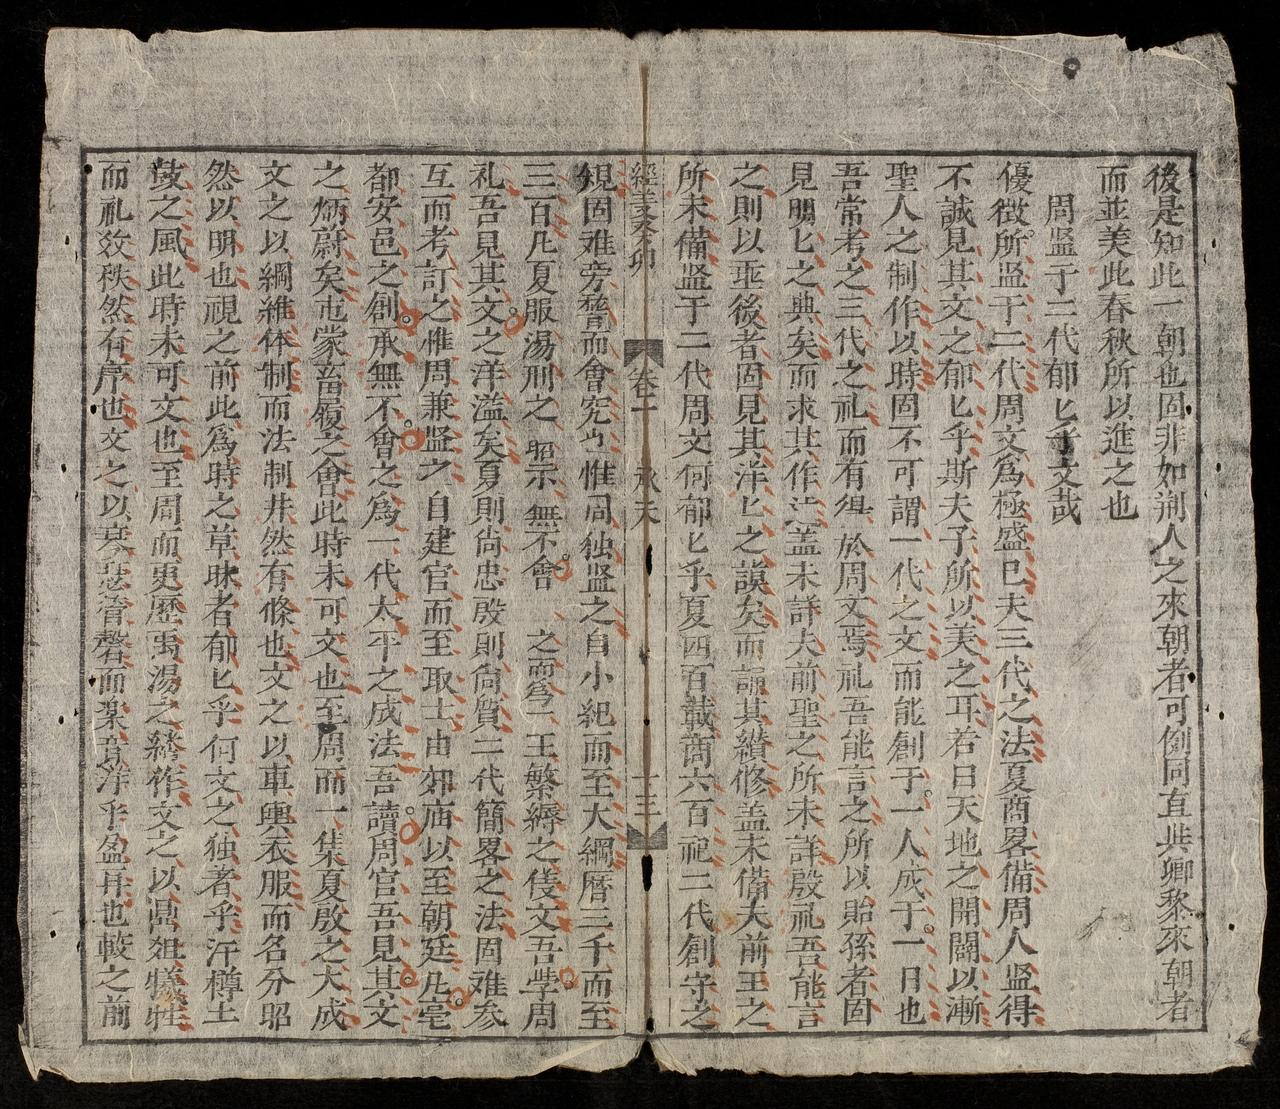 後是知此一朝也固非如荆人之來朝者可例同直與卿黎來朝者
而並美此春秋所以進之也
周监于二代郁匕乎文哉
優徴所监于二代周文爲極盛已夫三代之法夏商畧備周人监得
不誠見其文之郁匕乎斯夫子所以美之耳若曰天地之開闢以漸
聖人之制作以時固不可謂一代之文而能創于一人成于一日也
吾常考之三代之礼而有得於周文焉礼吾能言之所以貽孫者固
見明匕之典矣而求其作法盖未詳夫前聖之所未詳殷礼吾能言
之則以垂後者固見其洋匕之謨矣而請其纉修盖未備夫前王之
所未備监于二代周文何郁匕乎夏四百載商六百祀二代創守之
經義
卷一
永天
十三
規固难旁𥌓而會宪也惟周独监之自小紀而至大綱曆三千而至
三百凡夏服湯刑之昭示無不會之而爲一王繁縟之侄文吾学周
礼吾見其文之洋溢矣夏則尚忠殷則尚質二代簡畧之法固难参
互而考訂之惟周兼监之自建官而至取士由郊庙以至朝廷凡亳
都安邑之創承無不會之爲一代太平之成法吾讀周官吾見其文
之炳蔚矣屯蒙畜履之會此時未可文也至周而一集夏殷之大成
文之以綱維体制而法制井然有條也文之以車輿衣服而名分昭
然以明也視之前此爲時之草昧者郁匕乎何文之独著乎汙樽土
鼓之風此時未可文也至周而更歷禹湯之繼作文之以鼎俎犧牲
而礼效秩然有序也文之以琴瑟管磬而楽音洋乎盈耳也較之前